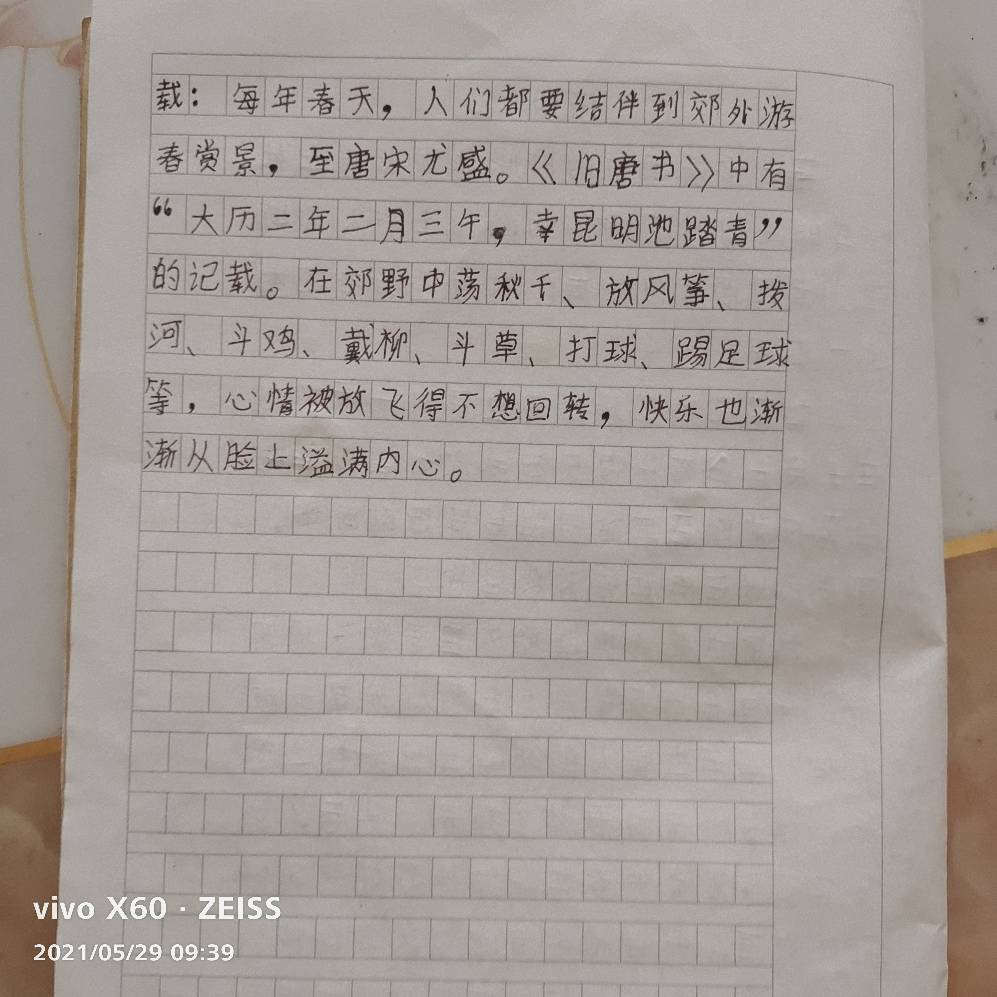 载：每年春天，人们都要结伴到郊外游
春赏景，至唐宋尤盛。《旧唐书》中有
“大历二年二月三午，幸昆明池踏青”
的记载。在郊野中荡秋千、放风筝、拨
河、斗鸡、戴柳、斗草、打球、踢足球
等，心情被放飞得不想回转，快乐也渐
渐从脸上溢满内心。
vivo X60 · ZEISS
2021/05/29 09:39